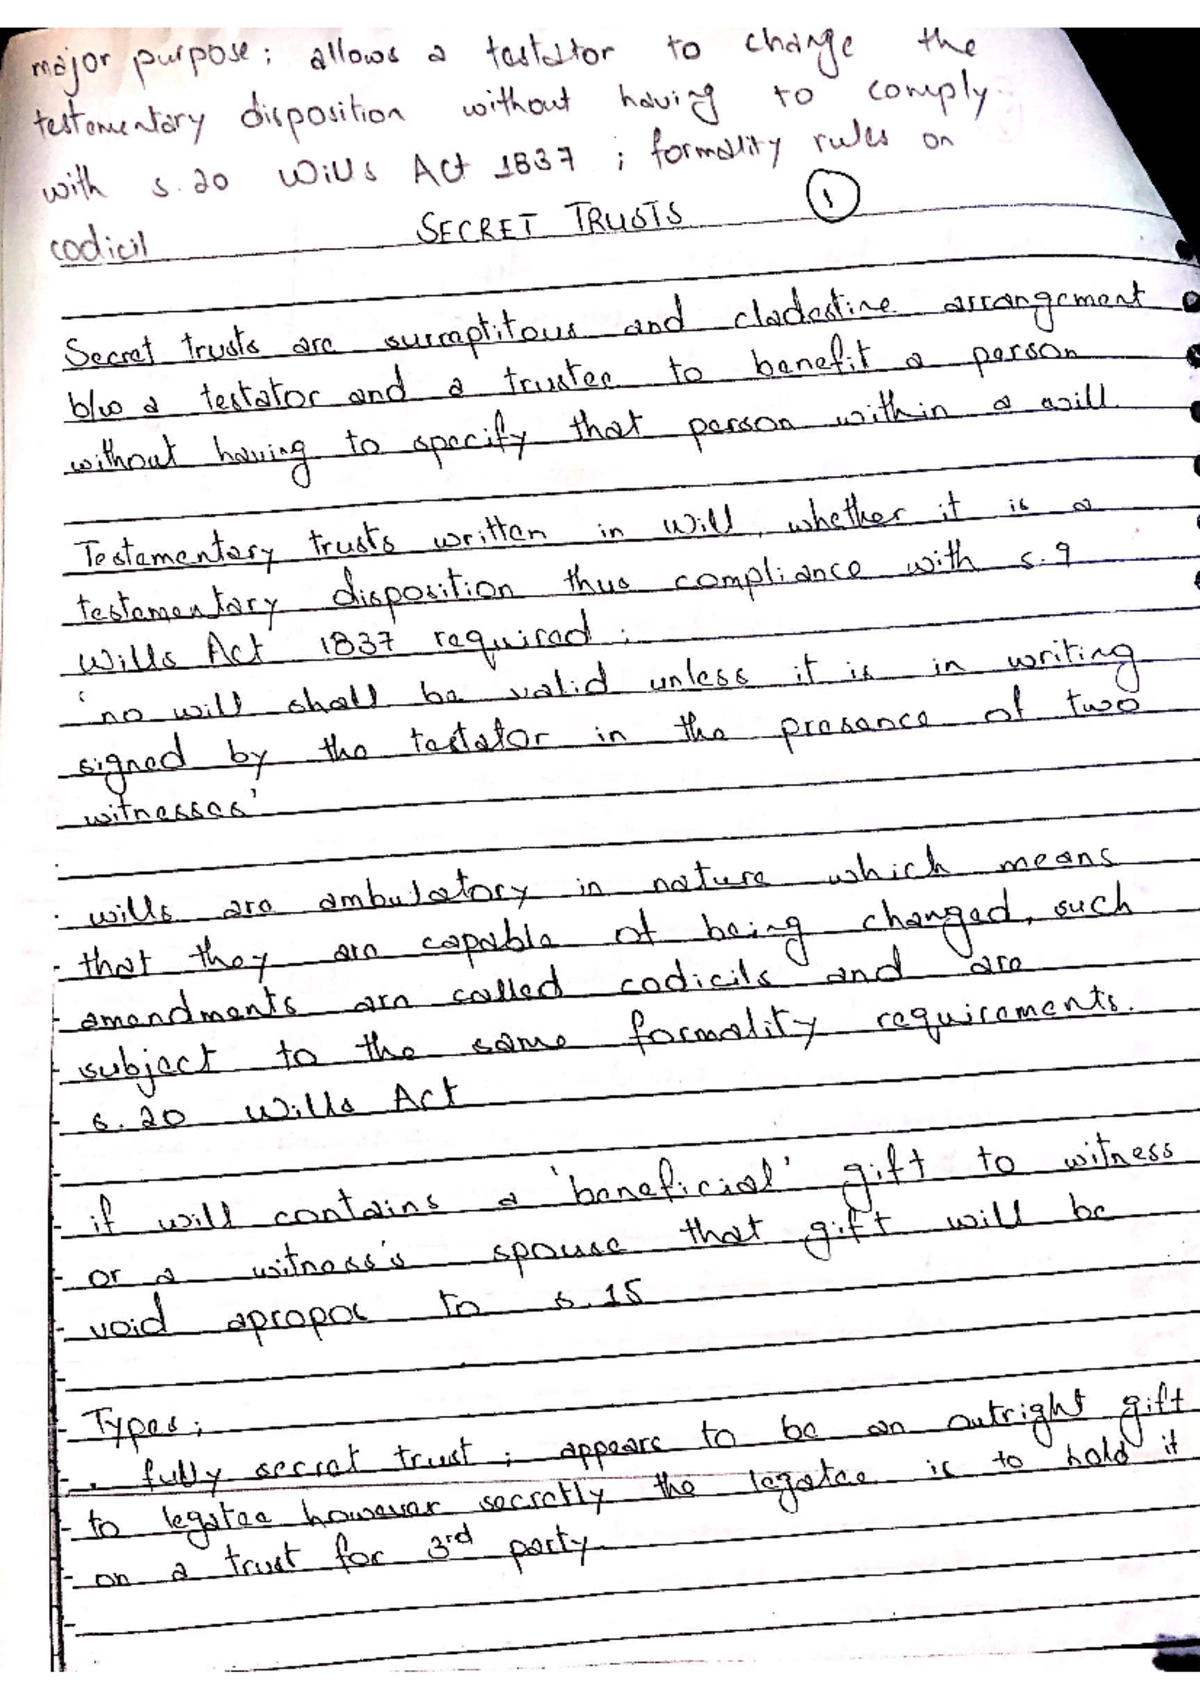 major purpose; allows a testator to change the
testementary disposition without having to comply
with s.20 Wills Act 1837 ; formality rules on
codicil
SECRET TRUSTS 1
Secret trusts are surreptitous and cladestine arrangement
b/w a testator and a trustee to benefit a person
without having to specify that person within a will.
Testamentary trusts written in will, whether it is a
testamentary disposition thus compliance with s.9
Wills Act 1837 required:
'no will shall be valid unless it is in writing
signed by the testator in the presence of two
witnesses'
wills are ambulatory in nature which means
that they are capable of being changed, such
amendments are called codicils and are
subject to the same formality requirements.
s.20 Wills Act
if will contains a 'beneficial' gift to witness
or a witness's spouse that gift will be
void apropos to s.15
Types;
. fully secret trust; appears to be an outright gift
to legatee however secretly the legatee is to hold it
on a trust for 3rd party.